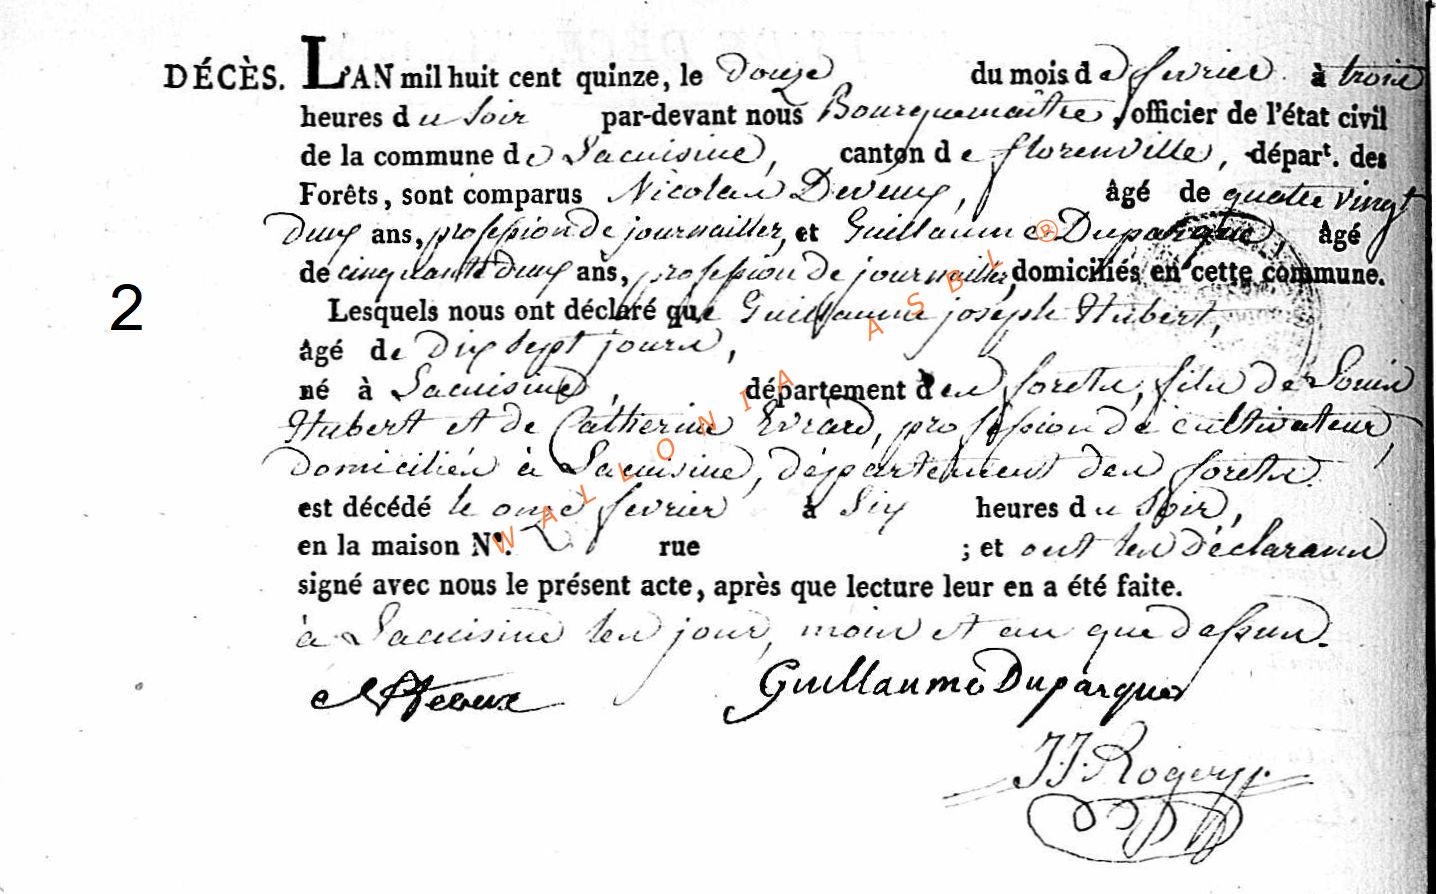 DÉCÈS. L'AN mil huit cent quinze, le douze du mois de fevrier à trois
heures du soir par-devant nous Bourguemaitre, officier de l'état civil
de la commune de Lacuisine, canton de florenville, départ. des
Forêts, sont comparus Nicolas Deveux, âgé de quatre vingt
Deux ans, profession de journailler, et Guillaume Duparque, âgé
de cinquante deux ans, profession de journaillier, domiciliés en cette commune.
2
Lesquels nous ont déclaré que Guillaume joseph Hubert,
âgé de Dix Sept jours,
né à Lacuisine, département des forets, fils de Louis
Hubert et de Catherine Evrard, profession de cultivateur,
domiciliés à Lacuisine, département des forets.
est décédé le onze fevrier à Six heures du Soir,
en la maison N°. rue ; et ont les déclarans
signé avec nous le présent acte, après que lecture leur en a été faite.
à Lacuisine les jour, mois et an que dessus.
Guillaume Duparque
J.J. Rogery
WALLONIA ASBL ®